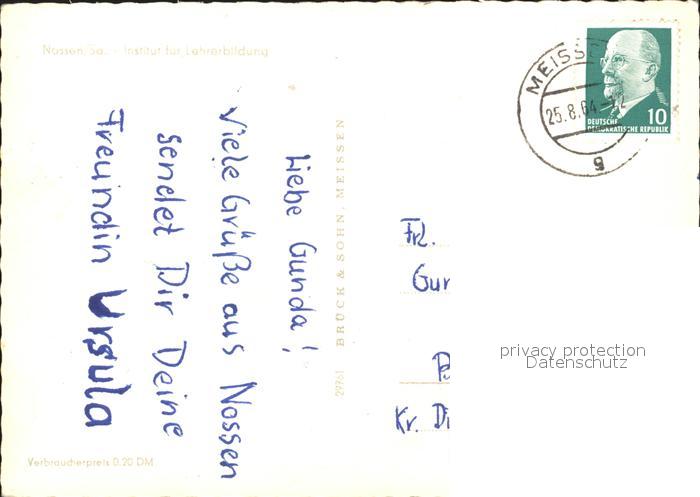 Nossen/Sa. - Institut für Lehrerbildung
Liebe Gunda!
viele Grüße aus Nossen
sendet Dir Deine
Freundin Ursula
29761 BRÜCK & SOHN, MEISSEN
Verbraucherpreis 0.20 DM
MEISS
25.8.64
g
10
DEUTSCHE
DEMOKRATISCHE REPUBLIK
Frl.
Gun
Kr. Di
privacy protection
Datenschutz